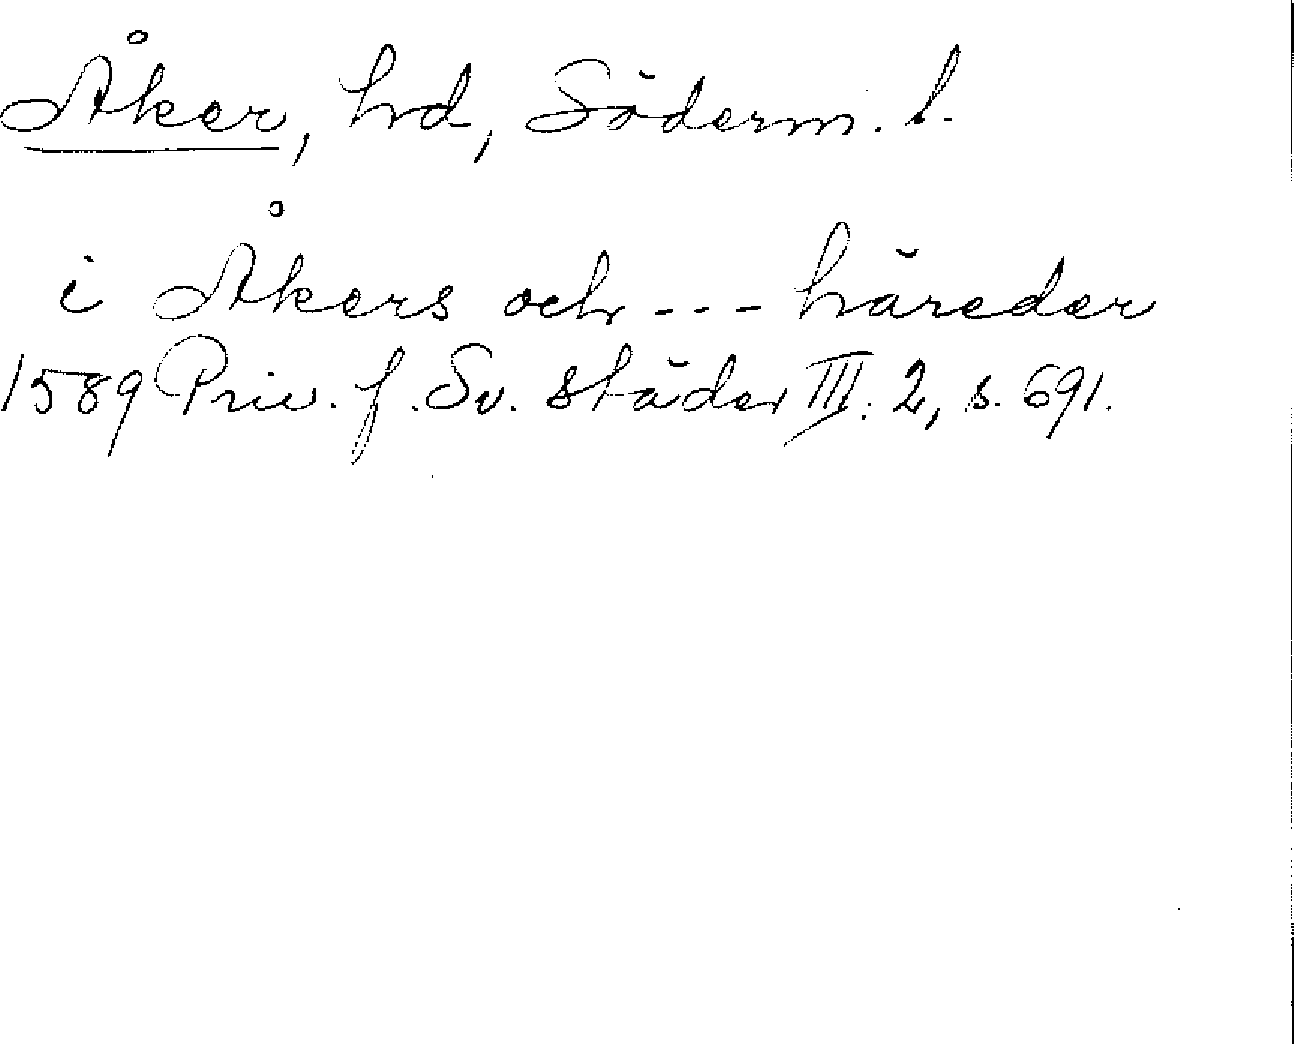 Åker, hd, Söderm. l.
i Åkers och --- häreder
1589 Priv. f. Sv. städer III. 2, s. 691.